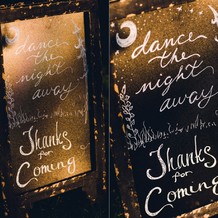 dance
the
night
away
Thanks
for
Coming
dance
the
night
away
Thanks
for
Coming